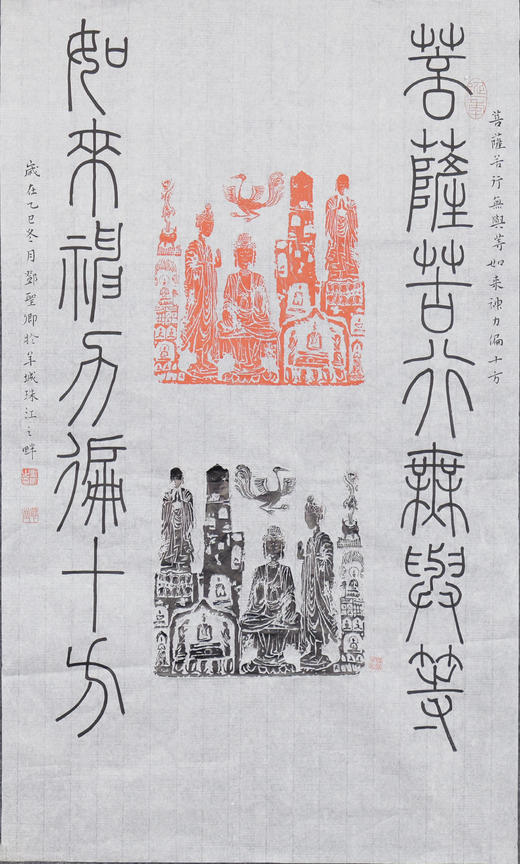 菩薩苦行無與等如来神力徧十方
菩薩苦行無與等
如來神力徧十方
歲在乙巳冬月鄧聖卿於羊城珠江之畔